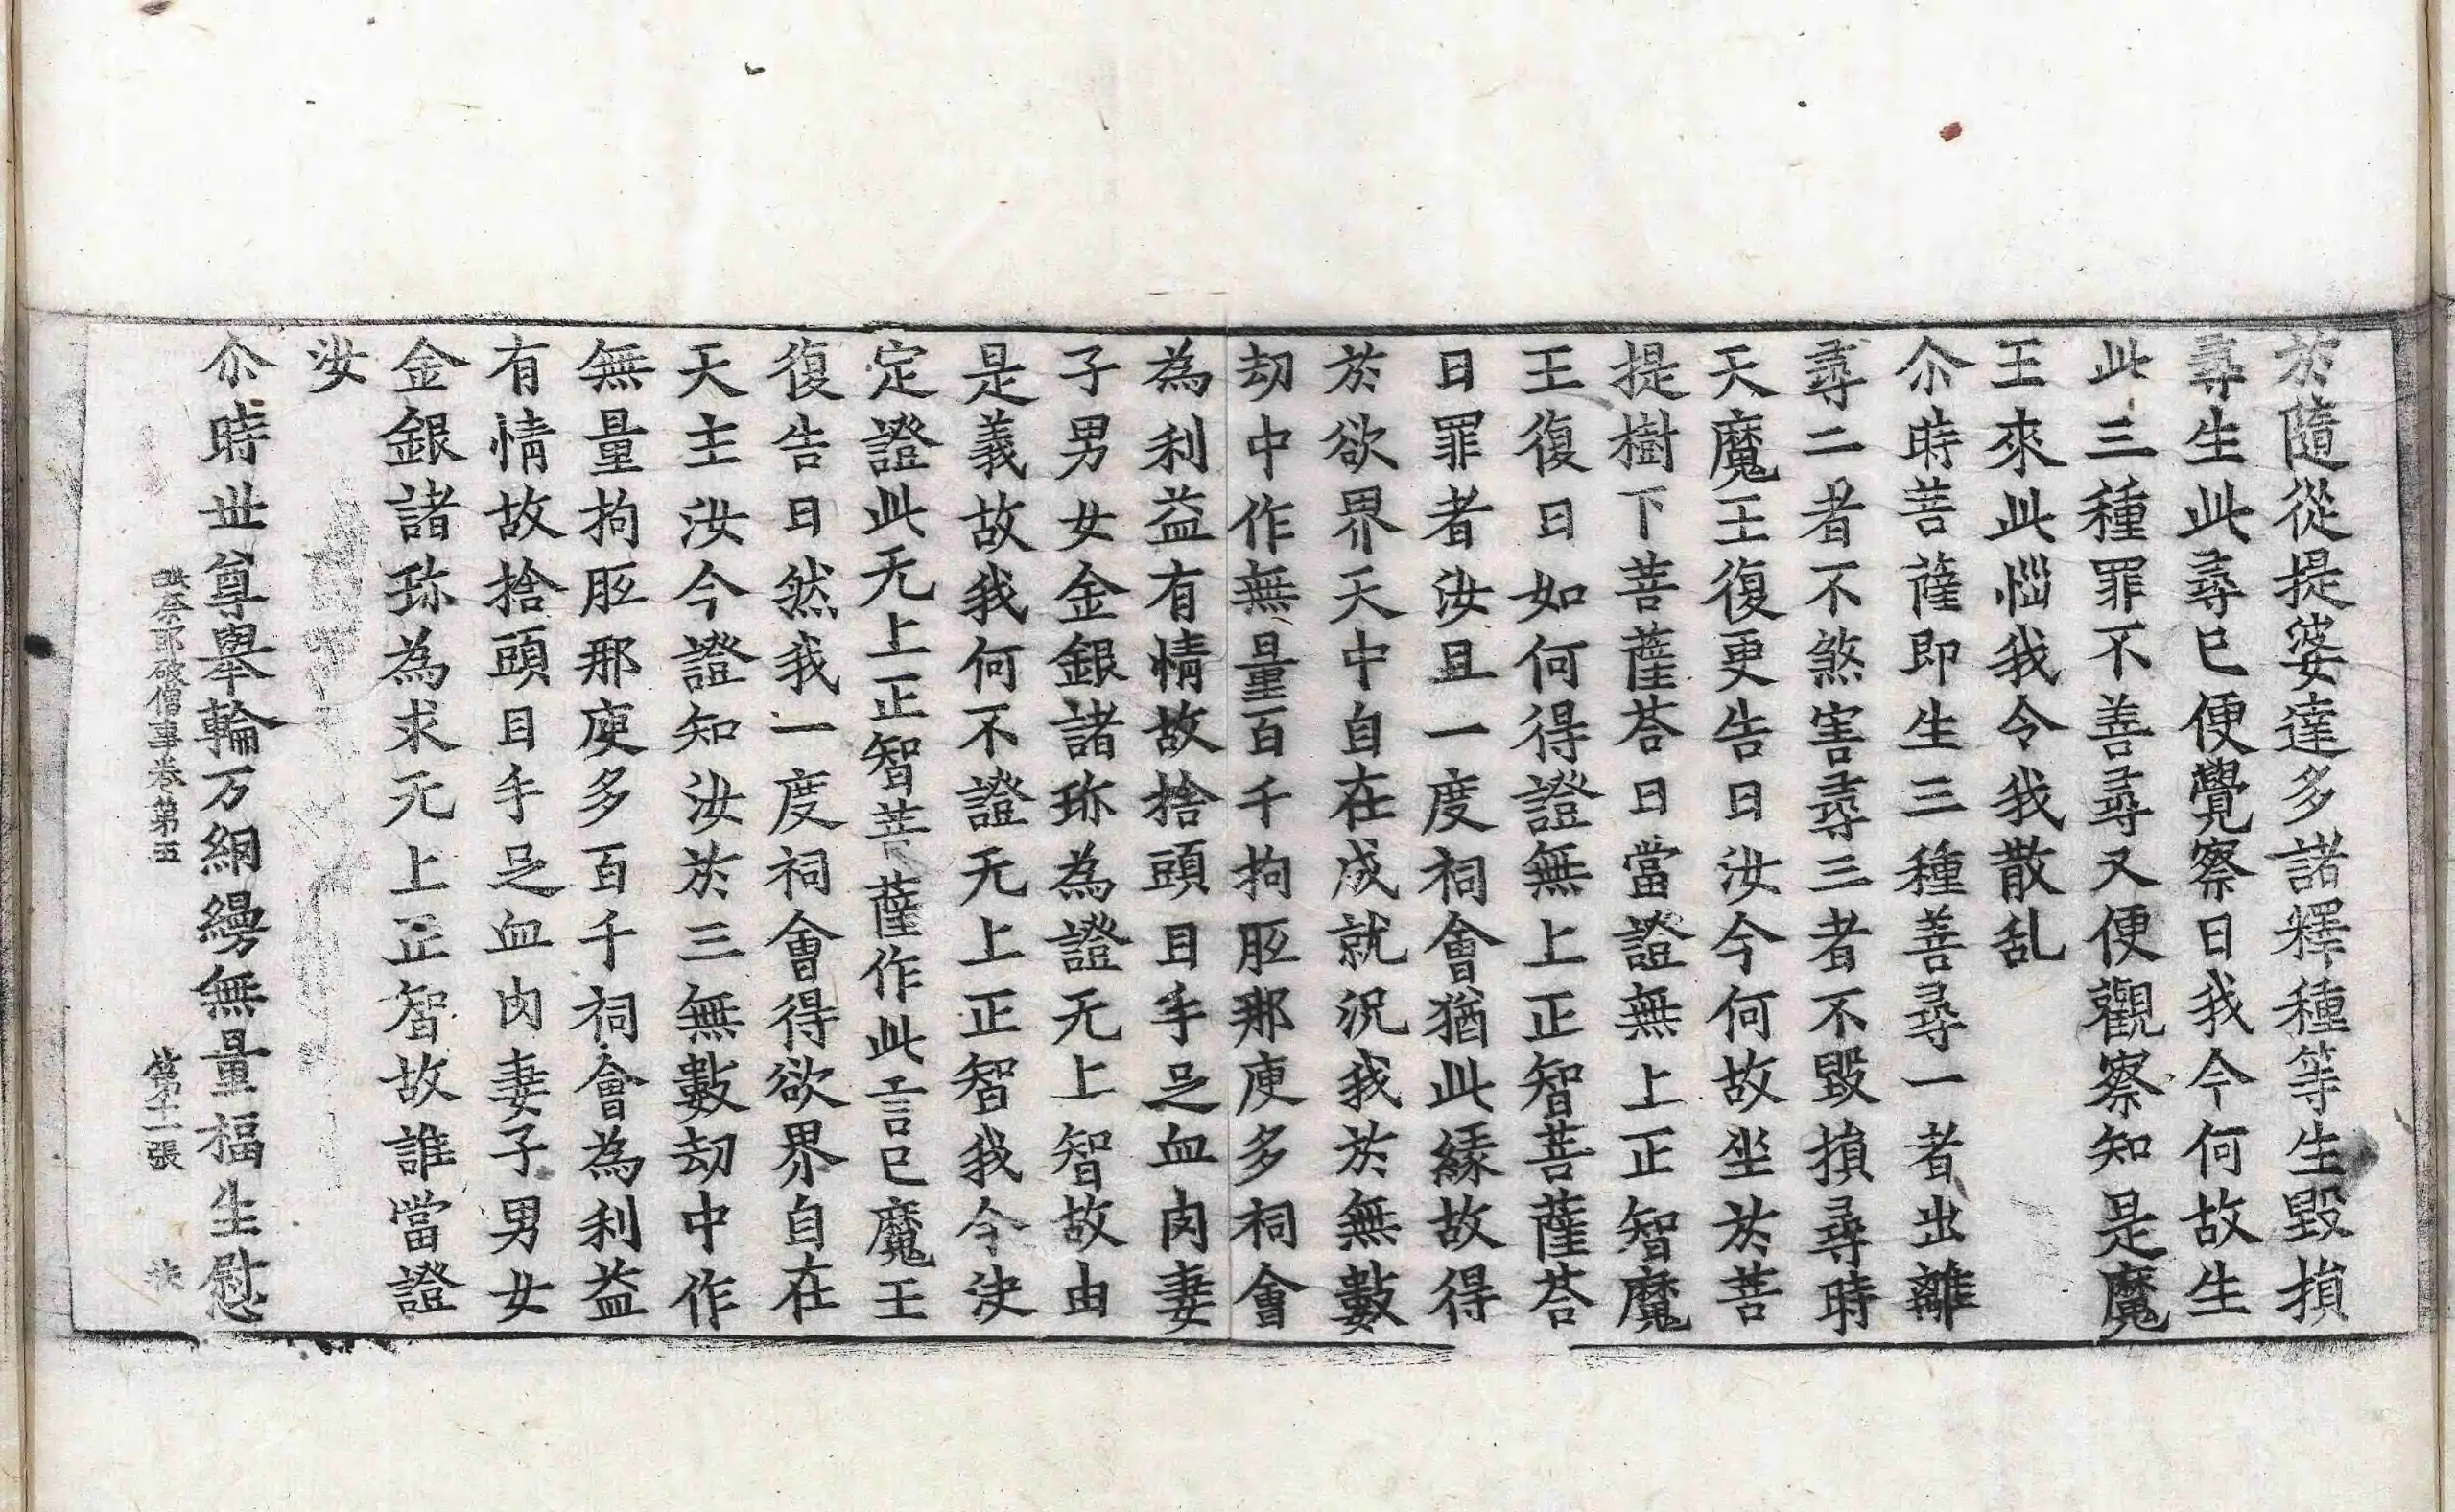 於隨從提婆達多諸釋種等生毀損
尋生此尋已便覺察曰我今何故生
此三種罪不善尋又便觀察知是魔
王來此惱我令我散乱
尒時菩薩即生三種善尋一者出離
尋二者不煞害尋三者不毀損尋時
天魔王復更告曰汝今何故坐於菩
提樹下菩薩荅曰當證無上正智魔
王復曰如何得證無上正智菩薩荅
曰罪者汝且一度祠會猶此緣故得
於欲界天中自在成就況我於無數
劫中作無量百千拘胝那庾多祠會
為利益有情故捨頭目手足血肉妻
子男女金銀諸珎為證无上智故由
是義故我何不證无上正智我今決
定證此无上正智菩薩作此言已魔王
復告曰然我一度祠會得欲界自在
天主汝今證知汝於三無數劫中作
無量拘胝那庾多百千祠會為利益
有情故捨頭目手足血肉妻子男女
金銀諸珎為求无上正智故誰當證
汝
尒時世尊舉輪万網縵無量福生慰
奈耶破僧事卷第五 第十二張